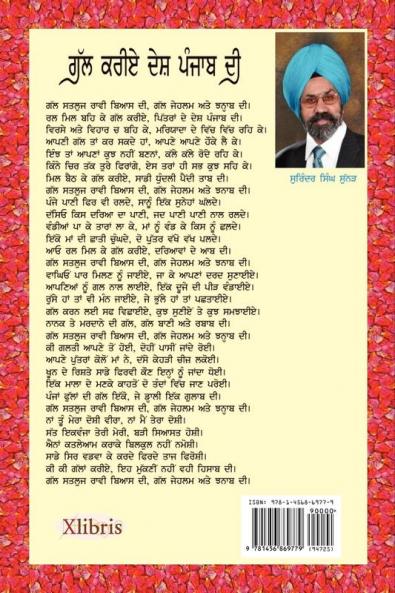 ਗੱਲ ਕਰੀਏ ਦੇਸ਼ ਪੰਜਾਬ ਦੀ
ਗੱਲ ਸਤਲੁਜ ਰਾਵੀ ਬਿਆਸ ਦੀ, ਗੱਲ ਜੇਹਲਮ ਅਤੇ ਝਨਾਬ ਦੀ।
ਰਲ ਮਿਲ ਬਹਿ ਕੇ ਗੱਲ ਕਰੀਏ, ਪਿੱਤਰਾਂ ਦੇ ਦੇਸ਼ ਪੰਜਾਬ ਦੀ।
ਵਿਰਸੇ ਅਤੇ ਵਿਹਾਰ ਚ ਬਹਿ ਕੇ, ਮਰਿਯਾਦਾ ਦੇ ਵਿੱਚ ਵਿੱਚ ਰਹਿ ਕੇ।
ਆਪਣੀ ਗੱਲ ਤਾਂ ਕਰ ਸਕਦੇ ਹਾਂ, ਆਪਣੇ ਆਪਣੇ ਹੌਕੇ ਲੈ ਕੇ।
ਇੰਝ ਤਾਂ ਆਪਣਾਂ ਕੁਝ ਨਹੀਂ ਬਣਨਾਂ, ਕਲੇ ਕਲੇ ਰੋਂਦੇ ਰਹਿ ਕੇ।
ਕਿੰਨੇ ਚਿਰ ਤੱਕ ਤੁਰੇ ਫਿਰਾਂਗੇ, ਏਸ ਤਰਾਂ ਹੀ ਸਭ ਕੁਝ ਸਹਿ ਕੇ।
ਮਿਲ ਬੈਠ ਕੇ ਗੱਲ ਕਰੀਏ, ਸਾਡੀ ਧੁੰਦਲੀ ਪੈਂਦੀ ਤਾਬ ਦੀ।
ਗੱਲ ਸਤਲੁਜ ਰਾਵੀ ਬਿਆਸ ਦੀ, ਗੱਲ ਜੇਹਲਮ ਅਤੇ ਝਨਾਬ ਦੀ।
ਪੰਜੇ ਪਾਣੀ ਫਿਰ ਵੀ ਰਲਦੇ, ਸਾਨੂੰ ਇੱਕ ਸੁਨੇਹਾ ਘੱਲਦੇ।
ਦੱਸਿਓ ਕਿਸ ਦਰਿਆ ਦਾ ਪਾਣੀ, ਜਦ ਪਾਣੀ ਪਾਣੀ ਨਾਲ ਰਲਦੇ।
ਵੰਡੀਆਂ ਪਾ ਕੇ ਤਾਰਾਂ ਲਾ ਕੇ, ਮਾਂ ਨੂੰ ਵੰਡ ਕੇ ਕਿਸ ਨੂੰ ਛਲਦੇ।
ਇੱਕੋ ਮਾਂ ਦੀ ਛਾਤੀ ਚੁੰਘਦੇ, ਦੋ ਪੁੱਤਰ ਵੱਖੋ ਵੱਖ ਪਲਦੇ।
ਆਓ ਰਲ ਮਿਲ ਕੇ ਗੱਲ ਕਰੀਏ, ਦਰਿਆਵਾਂ ਦੇ ਆਬ ਦੀ।
ਗੱਲ ਸਤਲੁਜ ਰਾਵੀ ਬਿਆਸ ਦੀ, ਗੱਲ ਜੇਹਲਮ ਅਤੇ ਝਨਾਬ ਦੀ।
ਵਾਘਿਓਂ ਪਾਰ ਮਿਲਣ ਨੂੰ ਜਾਈਏ, ਜਾ ਕੇ ਆਪਣਾਂ ਦਰਦ ਸੁਣਾਈਏ।
ਆਪਣਿਆਂ ਨੂੰ ਗਲ ਨਾਲ ਲਾਈਏ, ਇੱਕ ਦੂਜੇ ਦੀ ਪੀੜ ਵੰਡਾਈਏ।
ਰੁੱਸੇ ਹਾਂ ਤਾਂ ਵੀ ਮੰਨ ਜਾਈਏ, ਜੇ ਭੁੱਲੇ ਹਾਂ ਤਾਂ ਪਛਤਾਈਏ।
ਗੱਲ ਕਰਨ ਲਈ ਸਫ ਵਿਛਾਈਏ, ਕੁਝ ਸੁਣੀਏ ਤੇ ਕੁਝ ਸਮਝਾਈਏ।
ਨਾਨਕ ਤੇ ਮਰਦਾਨੇ ਦੀ ਗੱਲ, ਗੱਲ ਬਾਣੀ ਅਤੇ ਰਬਾਬ ਦੀ।
ਗੱਲ ਸਤਲੁਜ ਰਾਵੀ ਬਿਆਸ ਦੀ, ਗੱਲ ਜੇਹਲਮ ਅਤੇ ਝਨਾਬ ਦੀ।
ਕੀ ਗਲਤੀ ਆਪਣੇ ਤੋਂ ਹੋਈ, ਦੋਹੀਂ ਪਾਸੀਂ ਜਾਂਦੇ ਰੋਈ।
ਆਪਣੇ ਪੁੱਤਰਾਂ ਕੋਲੋਂ ਮਾਂ ਨੇ, ਦੱਸੋ ਕੇਹੜੀ ਚੀਜ਼ ਲਕੋਈ।
ਖੂਨ ਦੇ ਰਿਸ਼ਤੇ ਸਾਡੇ ਫਿਰਵੀ ਕੌਣ ਇਨ੍ਹਾਂ ਨੂੰ ਜਾਂਦਾ ਧੋਈ।
ਇੱਕ ਮਾਲਾ ਦੇ ਮਣਕੇ ਕਾਹਤੋਂ ਦੋ ਤੰਦਾਂ ਵਿੱਚ ਜਾਣ ਪਰੋਈ।
ਪੰਜਾਂ ਫੁੱਲਾਂ ਦੀ ਗੱਲ ਇੱਕੋ, ਜੋ ਡਾਲੀ ਇੱਕ ਗੁਲਾਬ ਦੀ।
ਗੱਲ ਸਤਲੁਜ ਰਾਵੀ ਬਿਆਸ ਦੀ, ਗੱਲ ਜੇਹਲਮ ਅਤੇ ਝਨਾਬ ਦੀ।
ਨਾਂ ਤੂੰ ਮੇਰਾ ਦੋਸ਼ੀ ਵੀਰਾ, ਨਾਂ ਮੈਂ ਤੇਰਾ ਦੋਸ਼ੀ।
ਸੱਤ ਇਕਵੰਜਾ ਤੇਰੀ ਮੇਰੀ, ਬੜੀ ਸਿਆਸਤ ਹੋਸ਼ੀ।
ਐਨਾਂ ਕਤਲੇਆਮ ਕਰਾਕੇ ਬਿਲਕੁਲ ਨਹੀਂ ਨਮੋਸ਼ੀ।
ਸਾਡੇ ਸਿਰ ਵਡਵਾ ਕੇ ਕਰਦੇ ਫਿਰਦੇ ਤਾਜ ਫਿਰੋਸ਼ੀ।
ਕੀ ਕੀ ਗੱਲਾਂ ਕਰੀਏ, ਇਹ ਮੁੱਕਣੀਂ ਨਹੀਂ ਵਹੀ ਹਿਸਾਬ ਦੀ।
ਗੱਲ ਸਤਲੁਜ ਰਾਵੀ ਬਿਆਸ ਦੀ, ਗੱਲ ਜੇਹਲਮ ਅਤੇ ਝਨਾਬ ਦੀ।
ਸੁਰਿੰਦਰ ਸਿੰਘ ਸੁੱਨੜ
Xlibris
ISBN: 978-1-4568-6977-9
90000>
9 781456 869779
(94725)